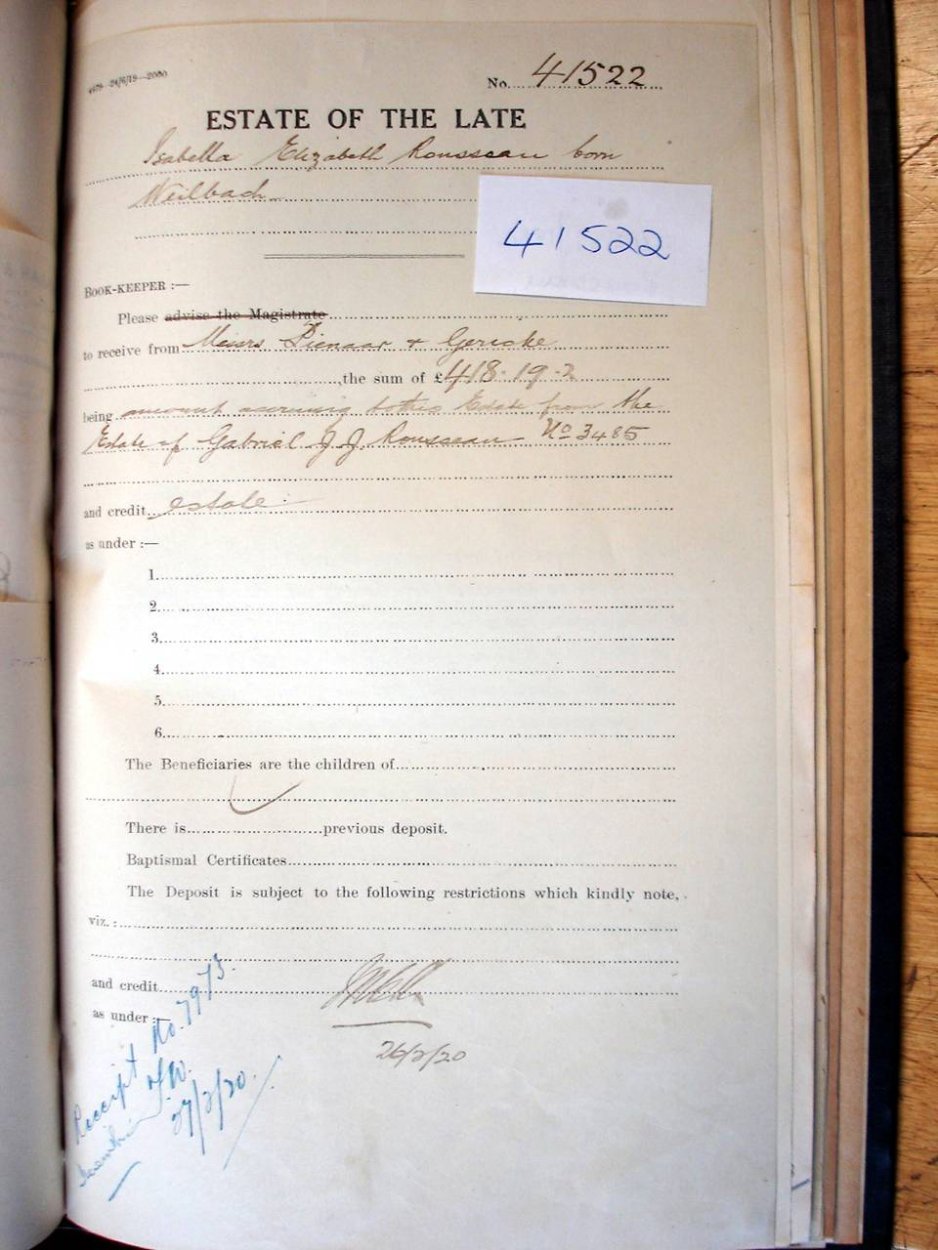 No. 41522
ESTATE OF THE LATE
Isabella Elizabeth Rousseau born
Weilbach
41522
BOOK-KEEPER :—
Please advise the Magistrate
to receive from Messrs Pienaar & Gericke
the sum of £418-19-2
being amount accruing to this Estate from the
Estate of Gabriel J. J. Rousseau No 3485
and credit estate
as under :—
1.
2.
3.
4.
5.
6.
The Beneficiaries are the children of
There is previous deposit.
Baptismal Certificates
The Deposit is subject to the following restrictions which kindly note,
viz. :
and credit
as under :—
26/2/20
Receipt No. 7973.
27/2/20.